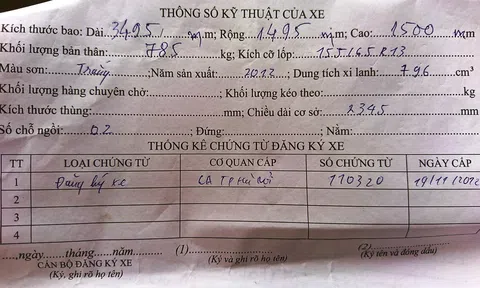 THÔNG SỐ KỸ THUẬT CỦA XE
Kích thước bao: Dài 3495 m,m; Rộng 1495 m,m; Cao: 1500 m,m
Khối lượng bản thân: 785 kg; Kích cỡ lốp: 155/65 R13
Màu sơn: Trắng ;Năm sản xuất: 2012 ; Dung tích xi lanh: 796 cm³
Khối lượng hàng chuyên chở: ; Khối lượng kéo theo: kg
Kích thước thùng: mm; Chiều dài cơ sở: 2345 mm
Số chỗ ngồi: 02 ; Đứng: ; Nằm:
THỐNG KÊ CHỨNG TỪ ĐĂNG KÝ XE
TT LOẠI CHỨNG TỪ CƠ QUAN CẤP SỐ CHỨNG TỪ NGÀY CẤP
1 Đăng ký xe CA TP Hà Nội 110320 19/11/2012
2
3
4
, ngày tháng năm (1) (2)
CÁN BỘ ĐĂNG KÝ XE (Ký và ghi rõ họ tên) (Ký tên và đóng dấu)
(Ký, ghi rõ họ tên)